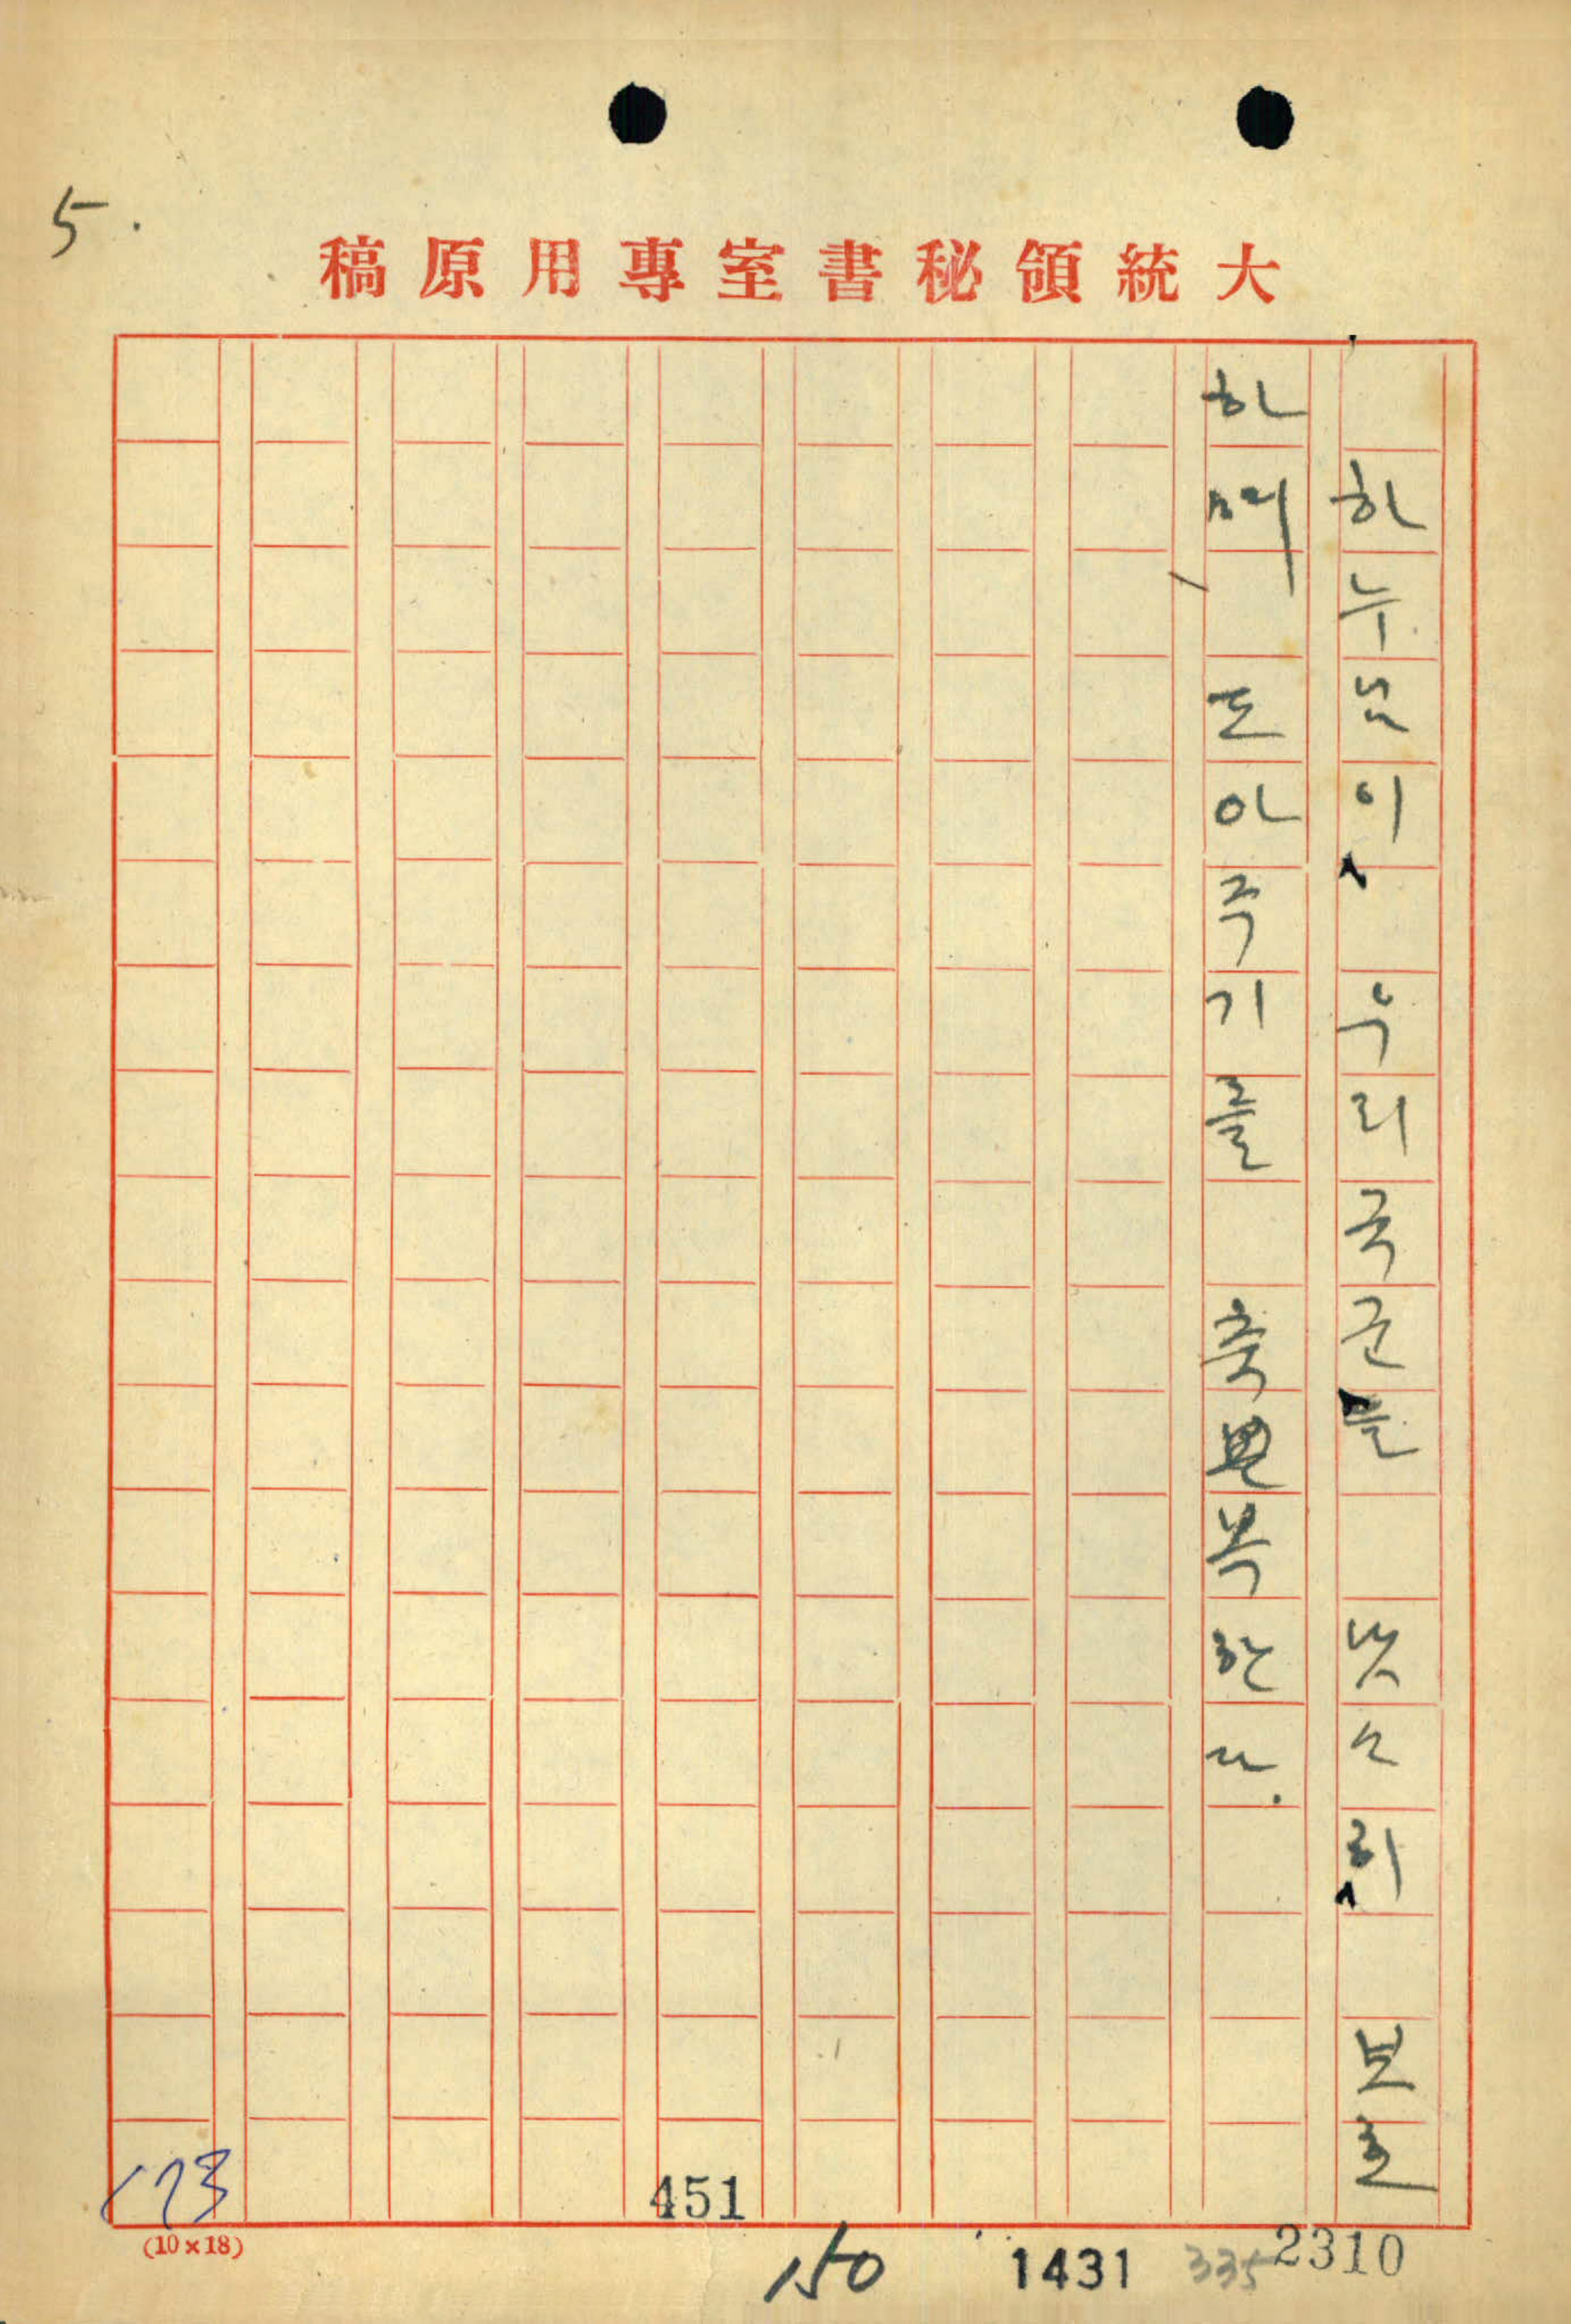 5.
大統領秘書室專用原稿
하누님이 우리국군을 넉々히 보호
하며 도아주기를 축복한다.
173
(10×18)
451
150
1431
335
2310